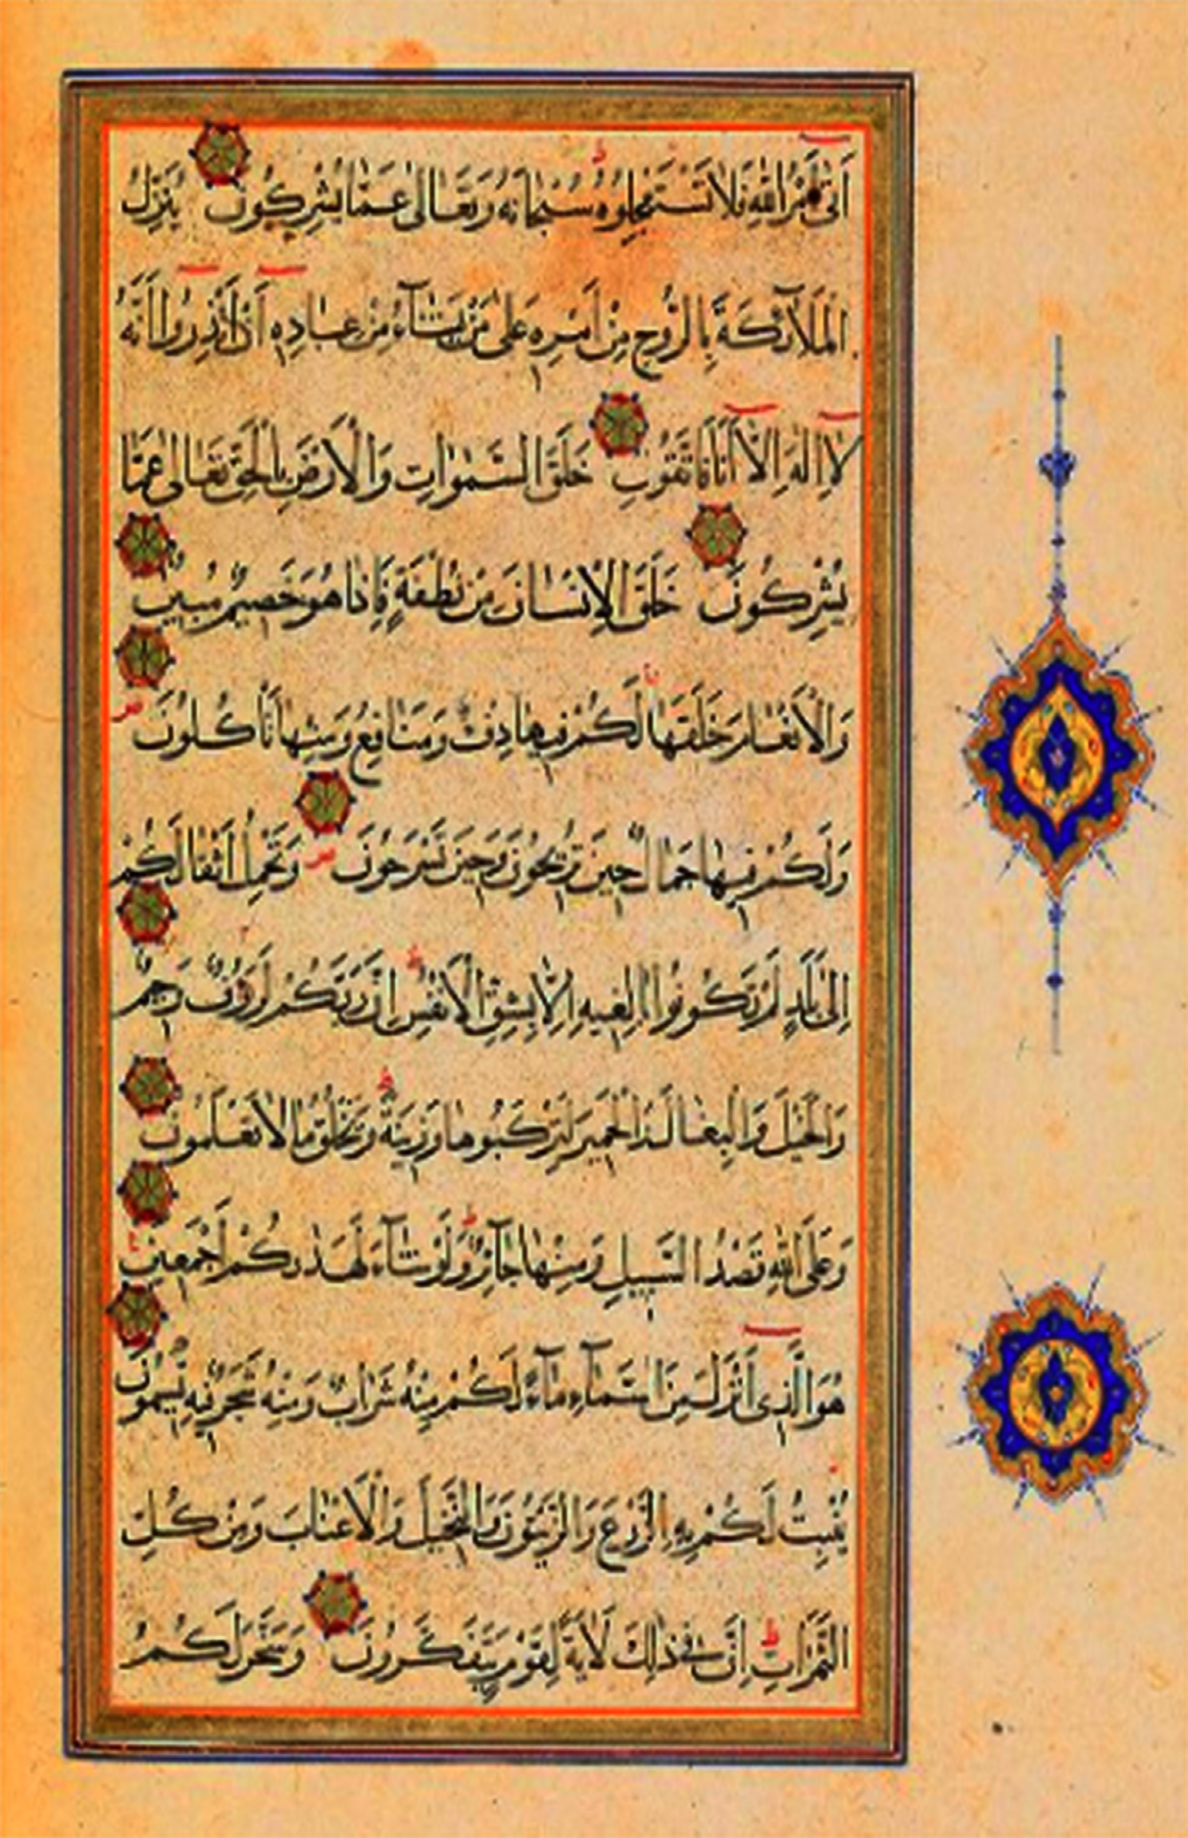 اَتٰى اَمْرُ اللّٰهِ فَلَا تَسْتَعْجِلُوهُ سُبْحَانَهُ وَتَعَالٰى عَمَّا يُشْرِكُونَ يُنَزِّلُ
الْمَلَآئِكَةَ بِالرُّوحِ مِنْ اَمْرِهِ عَلٰى مَنْ يَشَآءُ مِنْ عِبَادِهِ اَنْ اَنْذِرُوا اَنَّهُ
لَا اِلٰهَ اِلَّا اَنَا فَاتَّقُونِ خَلَقَ السَّمٰوَاتِ وَالْاَرْضَ بِالْحَقِّ تَعَالٰى عَمَّا
يُشْرِكُونَ خَلَقَ الْاِنْسَانَ مِنْ نُطْفَةٍ فَاِذَا هُوَ خَصِيمٌ مُبِينٌ
وَالْاَنْعَامَ خَلَقَهَا لَكُمْ فِيهَا دِفْءٌ وَمَنَافِعُ وَمِنْهَا تَاْكُلُونَ
وَلَكُمْ فِيهَا جَمَالٌ حِينَ تُرِيحُونَ وَحِينَ تَسْرَحُونَ وَتَحْمِلُ اَثْقَالَكُمْ
اِلٰى بَلَدٍ لَمْ تَكُونُوا بَالِغِيهِ اِلَّا بِشِقِّ الْاَنْفُسِ اِنَّ رَبَّكُمْ لَرَؤُفٌ رَحِيمٌ
وَالْخَيْلَ وَالْبِغَالَ وَالْحَمِيرَ لِتَرْكَبُوهَا وَزِينَةً وَيَخْلُقُ مَا لَا تَعْلَمُونَ
وَعَلَى اللّٰهِ قَصْدُ السَّبِيلِ وَمِنْهَا جَآئِرٌ وَلَوْ شَآءَ لَهَدٰيكُمْ اَجْمَعِينَ
هُوَ الَّذِى اَنْزَلَ مِنَ السَّمَآءِ مَآءً لَكُمْ مِنْهُ شَرَابٌ وَمِنْهُ شَجَرٌ فِيهِ تُسِيمُونَ
يُنْبِتُ لَكُمْ بِهِ الزَّرْعَ وَالزَّيْتُونَ وَالنَّخِيلَ وَالْاَعْنَابَ وَمِنْ كُلِّ
الثَّمَرَاتِ اِنَّ فِى ذٰلِكَ لَاٰيَةً لِقَوْمٍ يَتَفَكَّرُونَ وَسَخَّرَ لَكُمُ